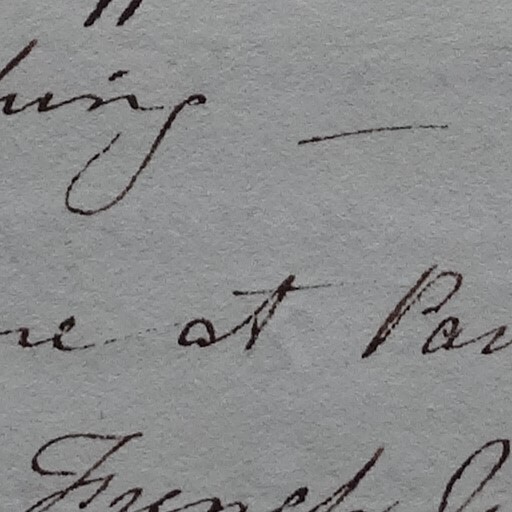 hing —
ne at Par
French